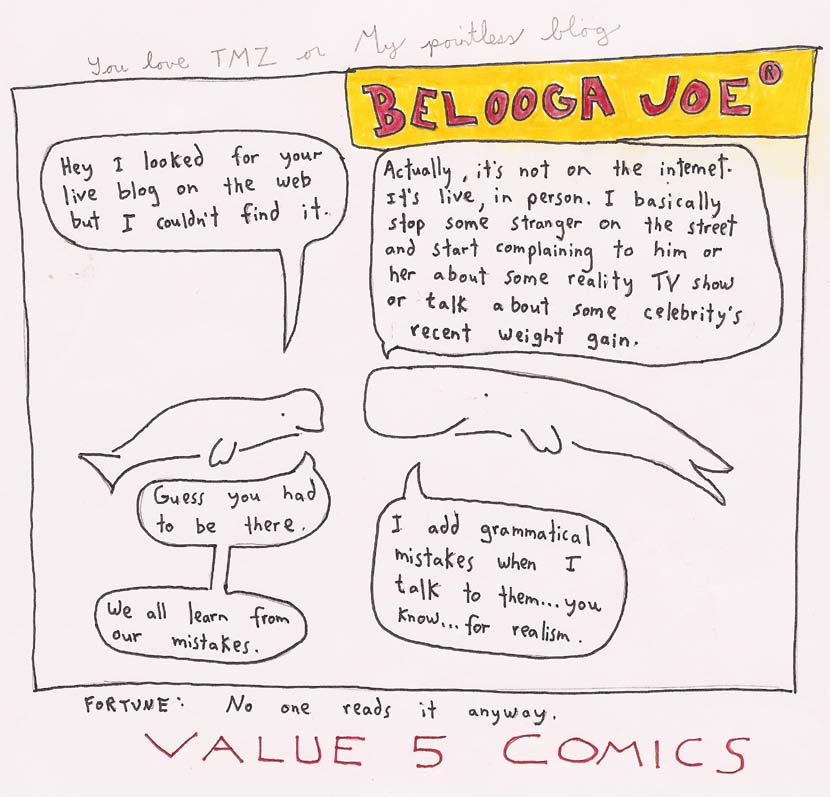 You love TMZ or My pointless blog
BELOOGA JOE®
Hey I looked for your
live blog on the web
but I couldn't find it.
Actually, it's not on the internet.
It's live, in person. I basically
stop some stranger on the street
and start complaining to him or
her about some reality TV show
or talk about some celebrity's
recent weight gain.
Guess you had
to be there.
I add grammatical
mistakes when I
talk to them...you
know...for realism.
We all learn from
our mistakes.
FORTUNE: No one reads it anyway.
VALUE 5 COMICS